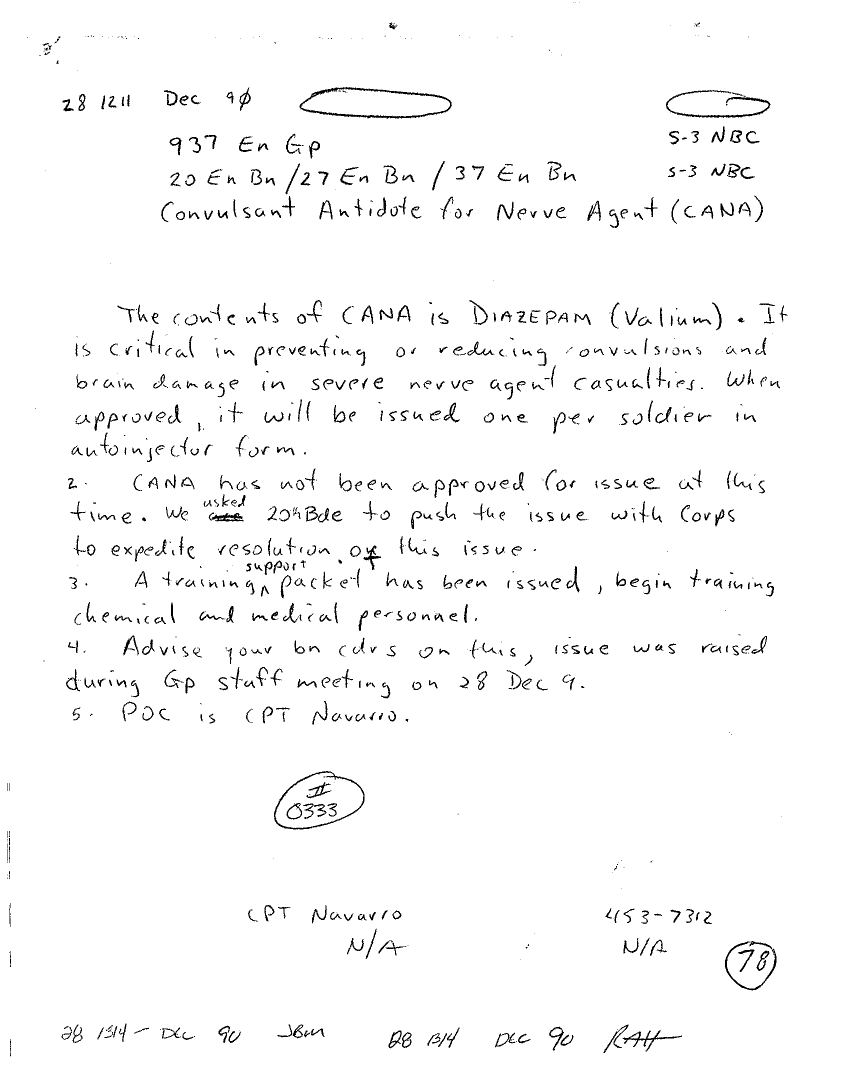 28 1211 Dec 90
937 En Gp S-3 NBC
20 En Bn / 27 En Bn / 37 En Bn S-3 NBC
Convulsant Antidote for Nerve Agent (CANA)
The contents of CANA is DIAZEPAM (Valium). It
is critical in preventing or reducing convulsions and
brain damage in severe nerve agent casualties. When
approved, it will be issued one per soldier in
autoinjector form.
2. CANA has not been approved for issue at this
time. We asked 20th Bde to push the issue with Corps
to expedite resolution of this issue.
3. A training support packet has been issued, begin training
chemical and medical personnel.
4. Advise your bn cdrs on this, issue was raised
during Gp staff meeting on 28 Dec 9.
5. POC is CPT Navarro.
II
0333
CPT Navarro 453-7312
N/A N/A
78
28 1314 DEC 90 JBM 28 1314 DEC 90 RAH